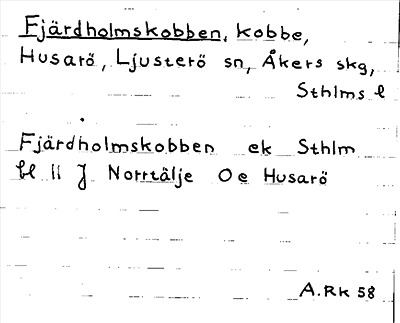 Fjärdholmskobben, kobbe,
Husarö, Ljusterö sn, Åkers skg,
Sthlms l
Fjärdholmskobben ek Sthlm
bl 11 J Norrtälje Oe Husarö
A.RK 58